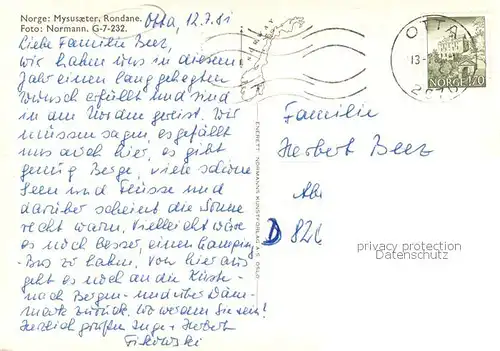 Norge: Mysusæter, Rondane.
Foto: Normann. G-7-232.
Otta, 12.7.81
Liebe Familie Beez,
wir haben uns in diesem
Jahr einen lang gehegten
Wunsch erfüllt und sind
in den Norden gereist. Wir
müssen sagen, es gefällt
uns auch hier, es gibt
genug Berge, viele schöne
Seen und Flüsse und
darüber scheint die Sonne
recht warm. Vielleicht wäre
es noch besser, einen Camping
-Bus zu haben. Von hier aus
geht es noch an die Küste
nach Bergen - und über Däne-
mark zurück. Wo werden Sie sein!
Herzlich grüßen Inge + Herbert
ENERETT: NORMANNS KUNSTFORLAG A.S. OSLO
OTTA
13-7
NORGE 170
Familie
Herbert Beez
D 826
privacy protection
Datenschutz